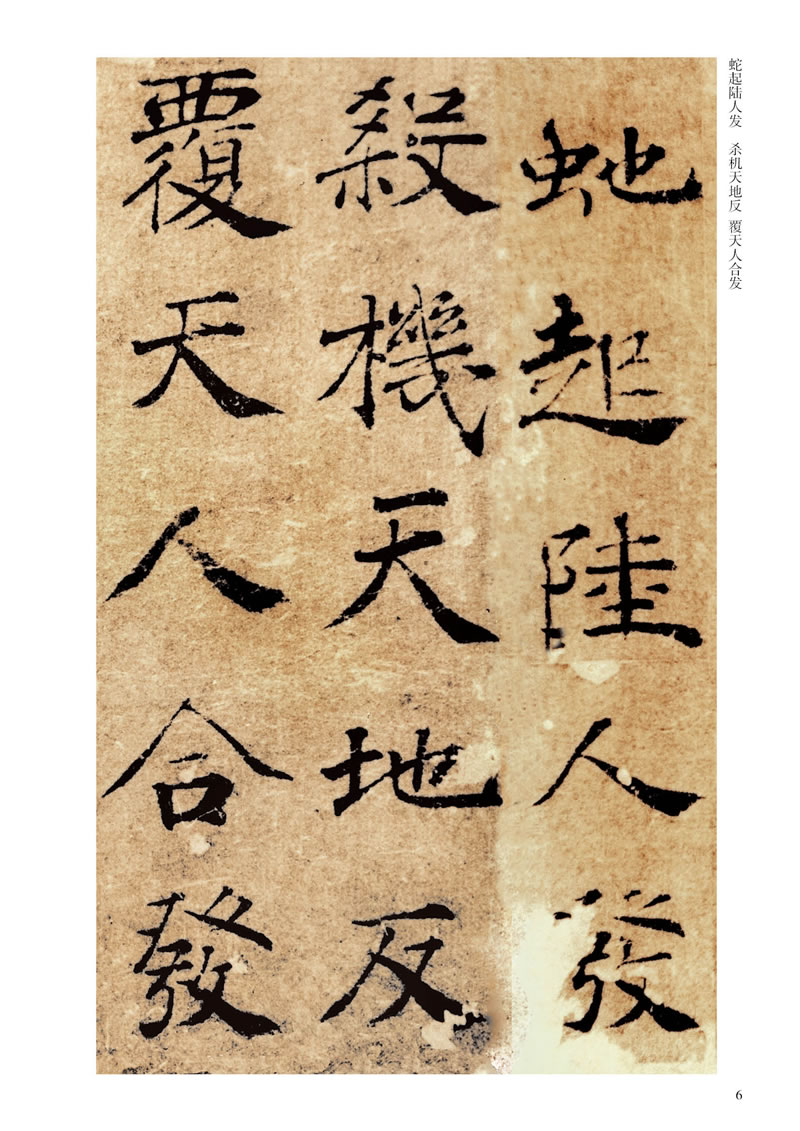 虵起陸人發
殺機天地反
覆天人合發
蛇起陆人发 杀机天地反 覆天人合发
6